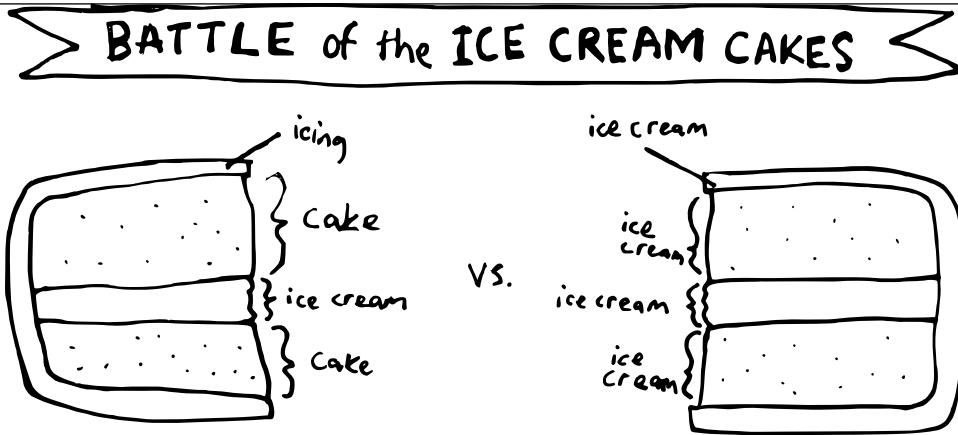 BATTLE of the ICE CREAM CAKES
icing
Cake
ice cream
Cake
VS.
ice cream
ice
cream
ice cream
ice
cream